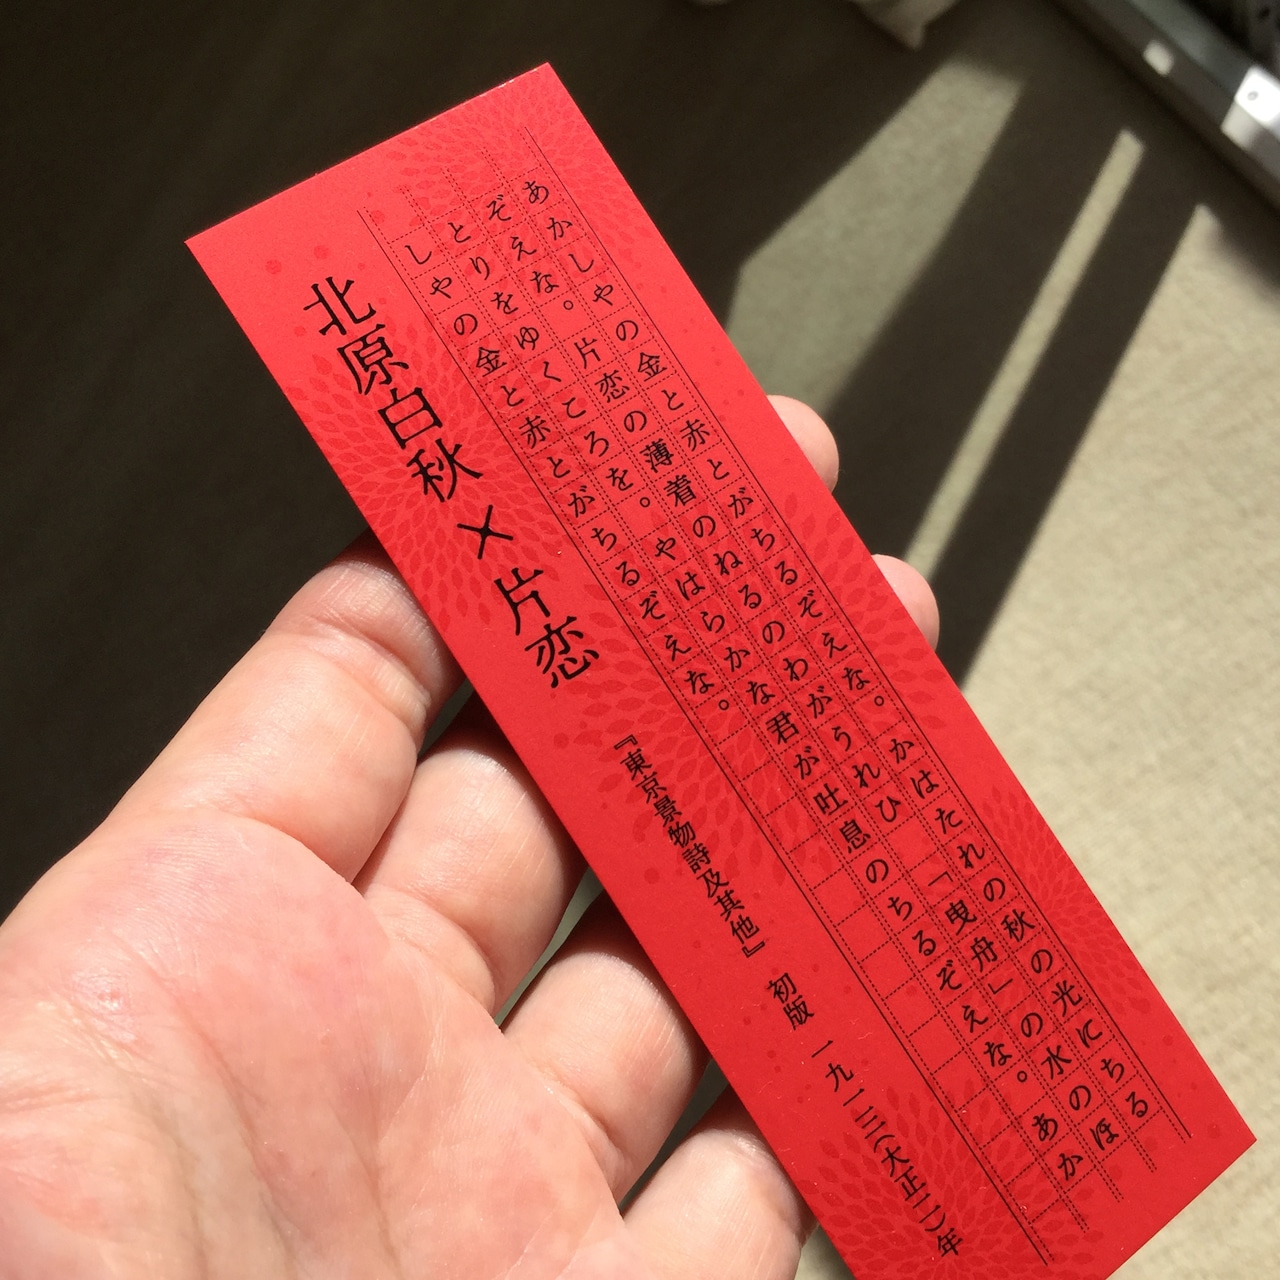 あかしやの金と赤とがちるぞえな。かはたれの秋の光にちる
ぞえな。片恋の薄着のねるのわがうれひ　「曳舟」の水のほ
とりをゆくころを。やはらかな君が吐息のちるぞえな。あか
しやの金と赤とがちるぞえな。
北原白秋×片恋
『東京景物詩及其他』　初版　一九一三（大正二）年